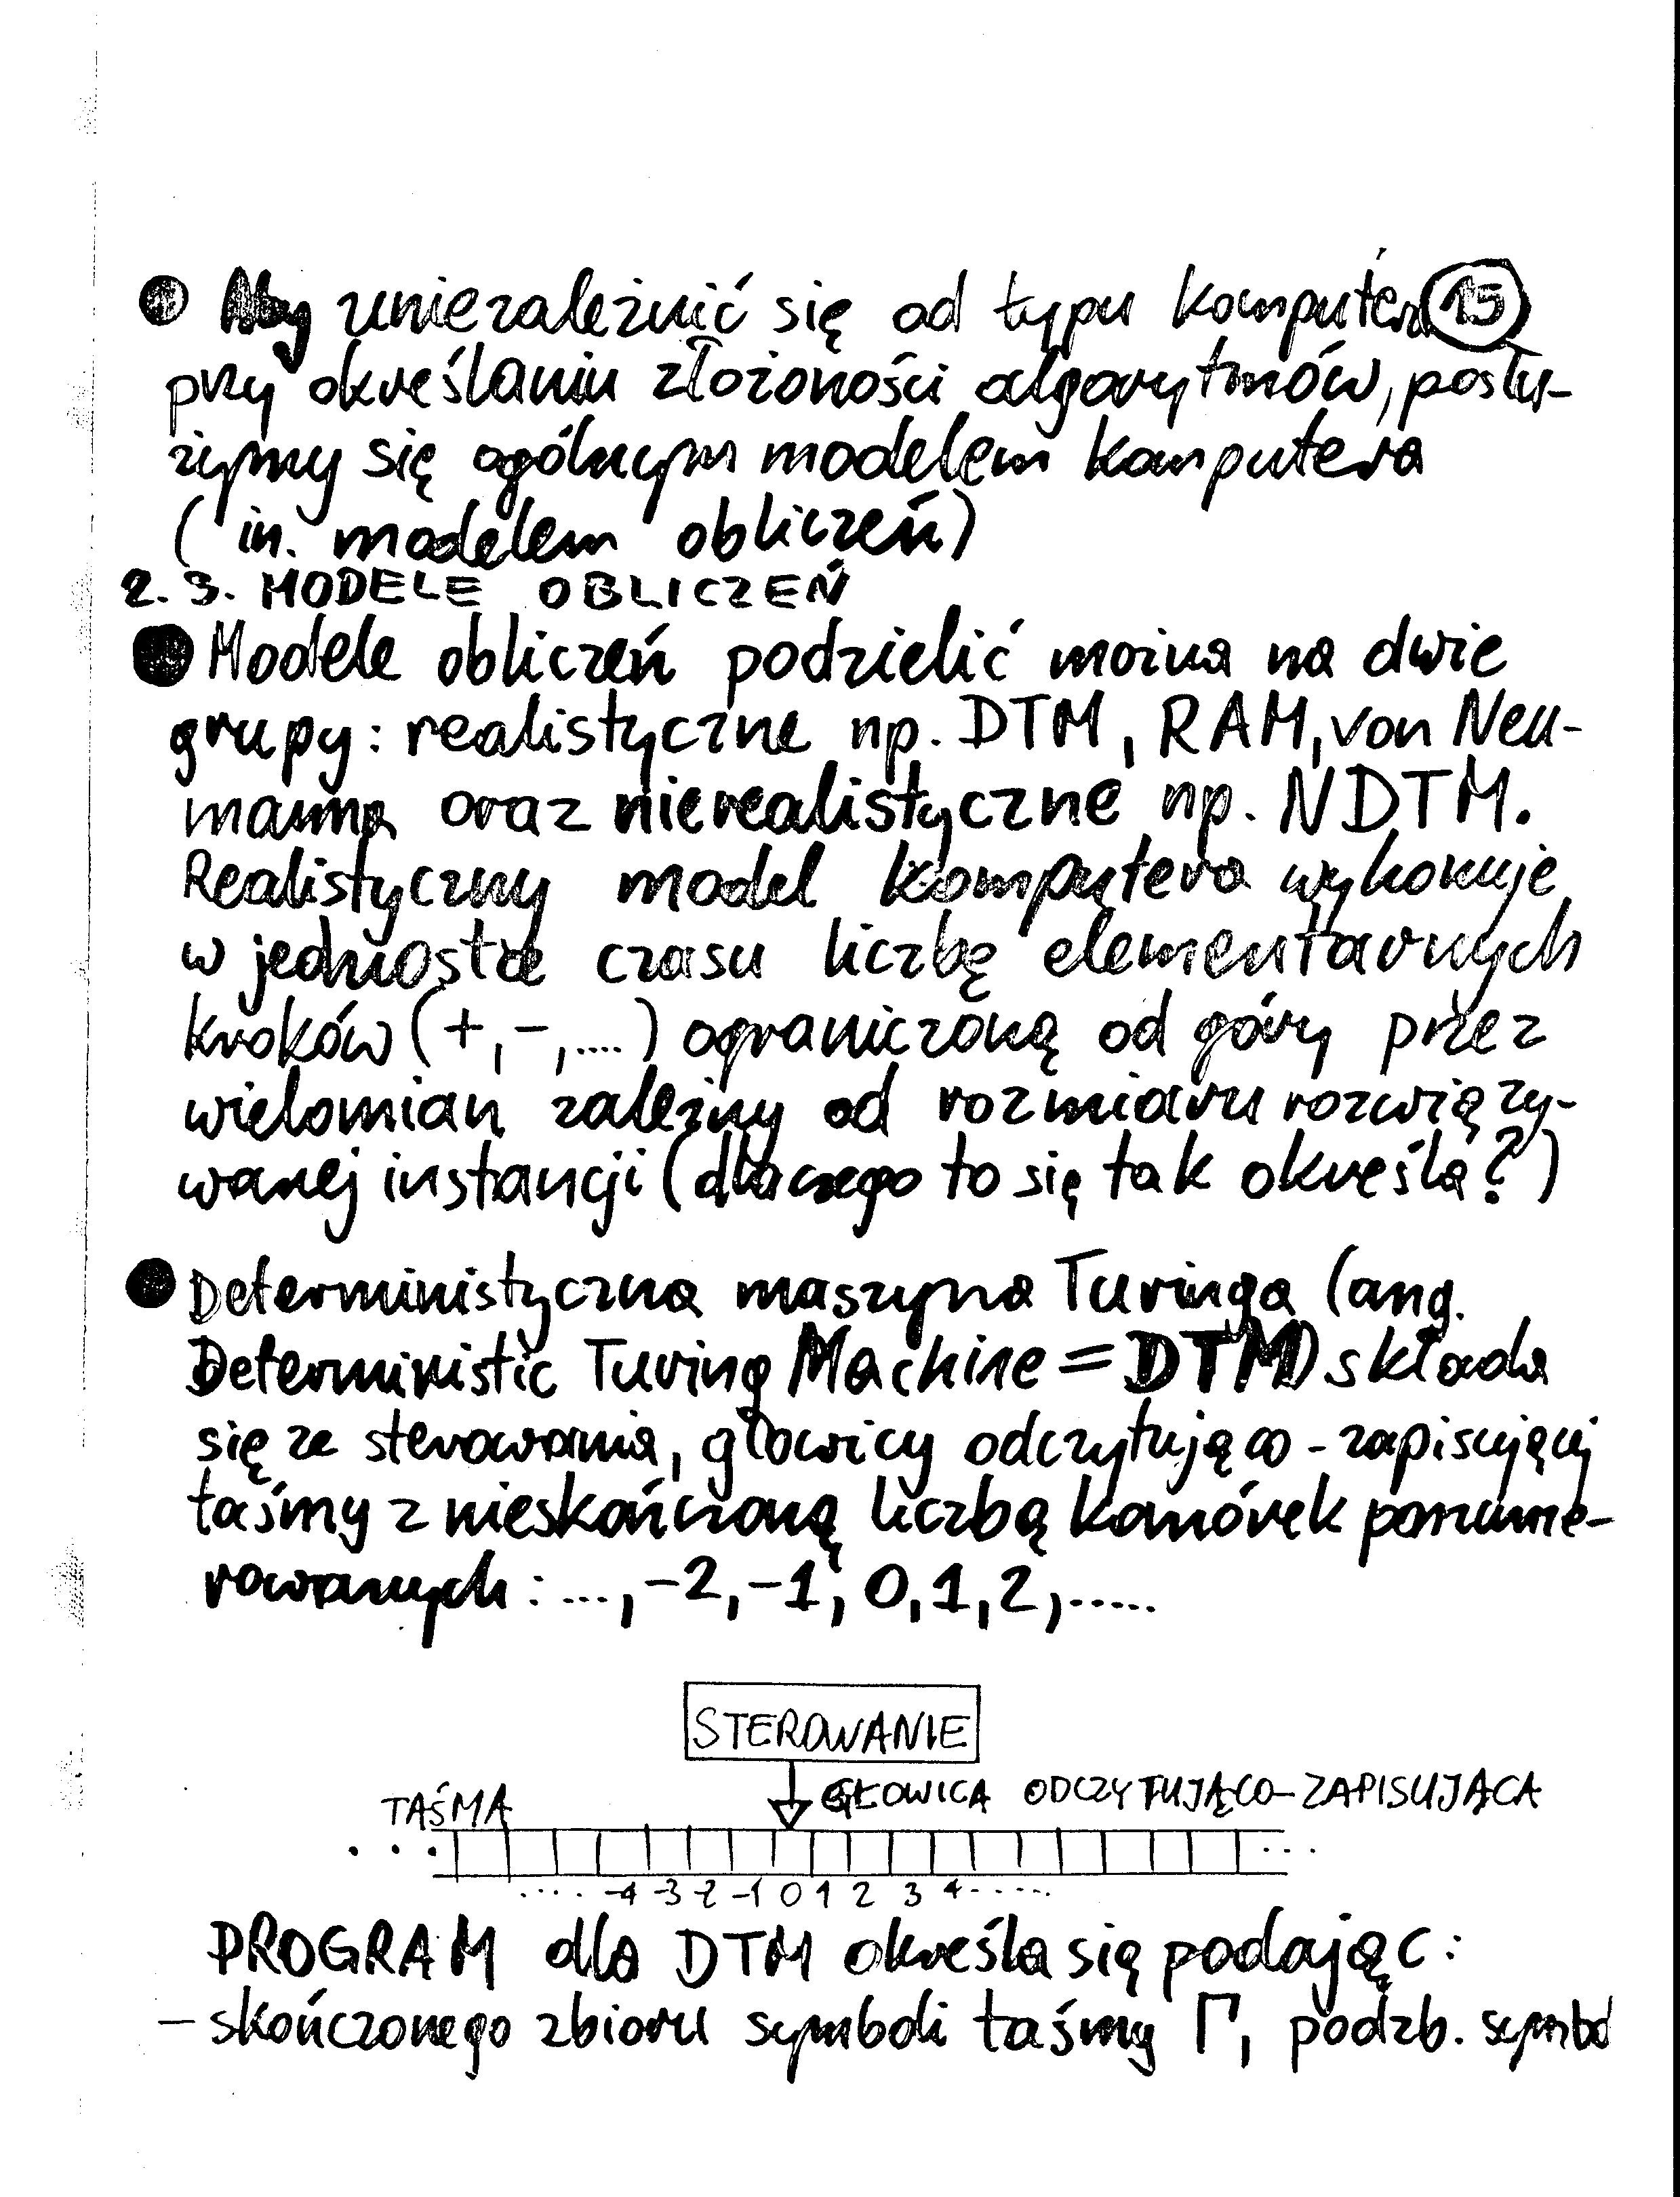 Aby uniezależnić się od typu komputera 15
przy określaniu złożoności algorytmów, posłu-
żymy się ogólnym modelem komputera
(in. modelem obliczeń)
2.3. MODELE OBLICZEŃ
Modele obliczeń podzielić można na dwie
grupy: realistyczne np. DTM, RAM, von Neu-
manna oraz nierealistyczne np. NDTM.
Realistyczny model komputera wykonuje
w jednostce czasu liczbę elementarnych
kroków (+,-,....) ograniczoną od góry przez
wielomian zależny od rozmiaru rozwiązy-
wanej instancji (dlaczego to się tak określa?)
Deterministyczna maszyna Turinga (ang.
Deterministic Turing Machine = DTM) składa
się ze sterowania, głowicy odczytująco-zapisującej
taśmy z nieskończoną liczbą komórek ponume-
rowanych: ..., -2, -1, 0, 1, 2, .....
STEROWANIE
TAŚMA GŁOWICA ODCZYTUJĄCO-ZAPISUJĄCA
... ...
..... -4 -3 -2 -1 0 1 2 3 4 ......
PROGRAM dla DTM określa się podając:
- skończonego zbioru symboli taśmy Γ, podzb. symbol